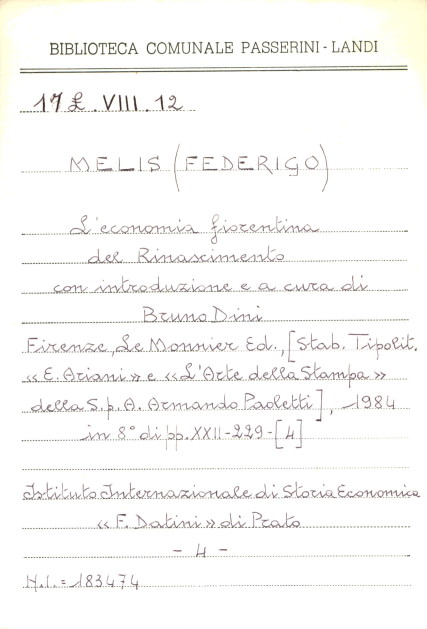 BIBLIOTECA COMUNALE PASSERINI-LANDI
17 £. VIII. 12
MELIS (FEDERIGO)
L'economia fiorentina
del Rinascimento
con introduzione e a cura di
Bruno Dini
Firenze, Le Monnier Ed., [Stab. Tipolit.
«E. Ariani» e «L'Arte della Stampa»
della S.p.A. Armando Paoletti], 1984
in 8° di pp. XXII-229-[4]
Istituto Internazionale di Storia Economica
«F. Datini» di Prato
- 4 -
N.I. = 183474